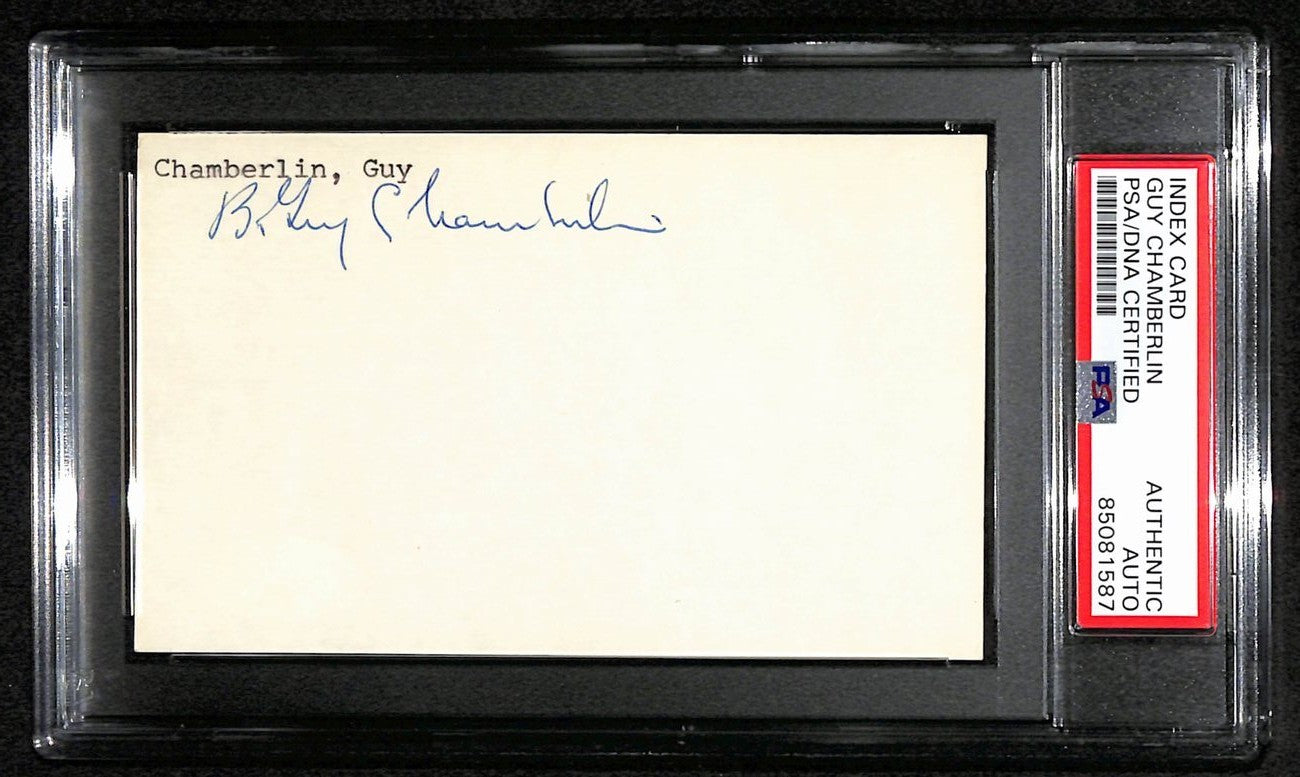 Chamberlin, Guy
B. Guy Chamberlin
INDEX CARD
GUY CHAMBERLIN
PSA/DNA CERTIFIED
AUTHENTIC
AUTO
85081587
PSA